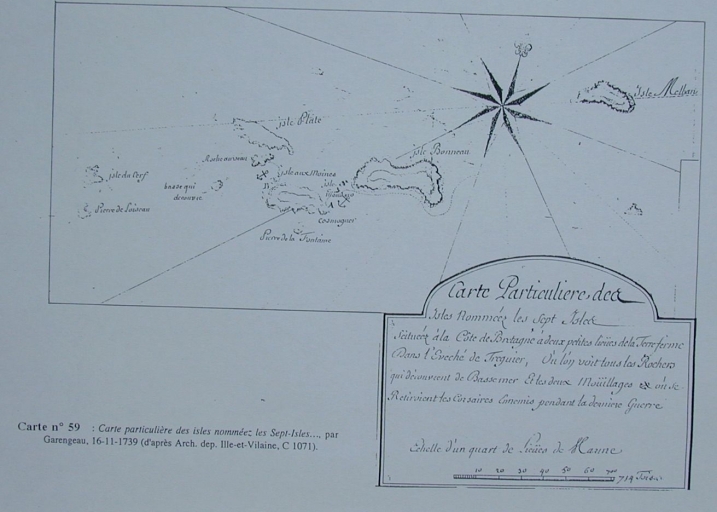 isle Plate
Isle Melban
isle Bonneau
isle du Cerf
basse qui
decouvre
isle aux Moines
isle
Pierre de la Fontaine
B
A
Carte Particuliere des
Isles Nommées les Sept Isles
Scituées à la Côte de Bretagne à deux petites lieües de la Terre ferme
Dans l'Eveché de Treguier, Ou l'on voit tous les Rochers
qui découvrent de Basse mer Et les deux Moüillages où se
Retiroient les Corsaires Ennemis pendant la derniere Guerre
Echelle d'un quart de Lieües de Marine
10 20 30 40 50 60 700
Carte n° 59 : Carte particulière des isles nommées les Sept-Isles..., par
Garengeau, 16-11-1739 (d'après Arch. dep. Ille-et-Vilaine, C 1071).